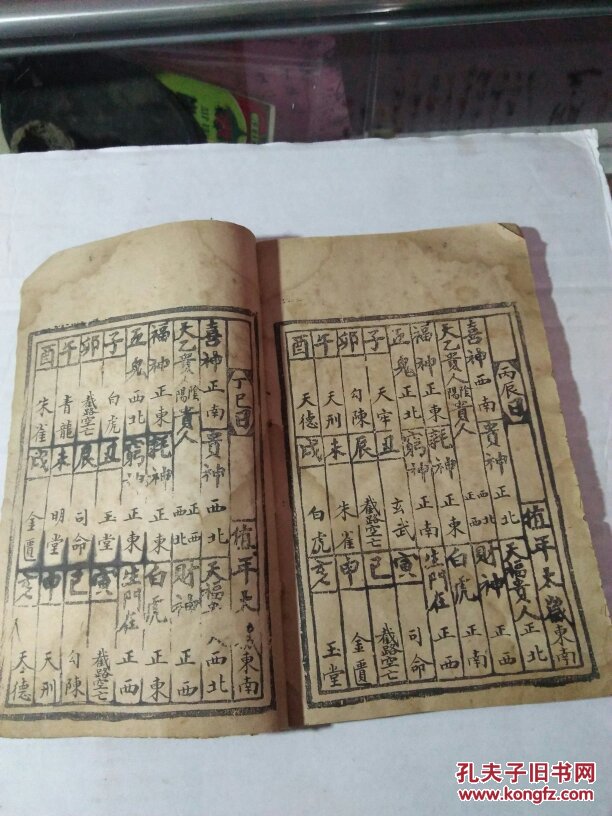 丙辰日 值年太歲東南
喜神西南 貴神正北 天福貴人正北
天乙貴人陰陽貴人 正北 正西 財神 正西
福神正東 耗神正南 白虎正南
五鬼正北 窮神正南 生門在正西
子 天牢 丑 玄武 寅 司命
卯 勾陳 辰 截路空亡 巳 截路空亡
午 天刑 未 朱雀 申 金匱
酉 天德 戌 白虎 亥 玉堂
丁巳日 值年太歲東南
喜神正南 貴神西北 天福 人西北
天乙貴人陰陽貴人 正西 西北 財神 正西
福神正東 耗神正東 白虎正東
五鬼西北 窮神正東 生門在正西
子 白虎 丑 玉堂 寅 截路空亡
卯 截路空亡 辰 司命 巳 勾陳
午 青龍 未 明堂 申 天刑
酉 朱雀 戌 金匱 亥 天德
孔夫子旧书网
www.kongfz.com